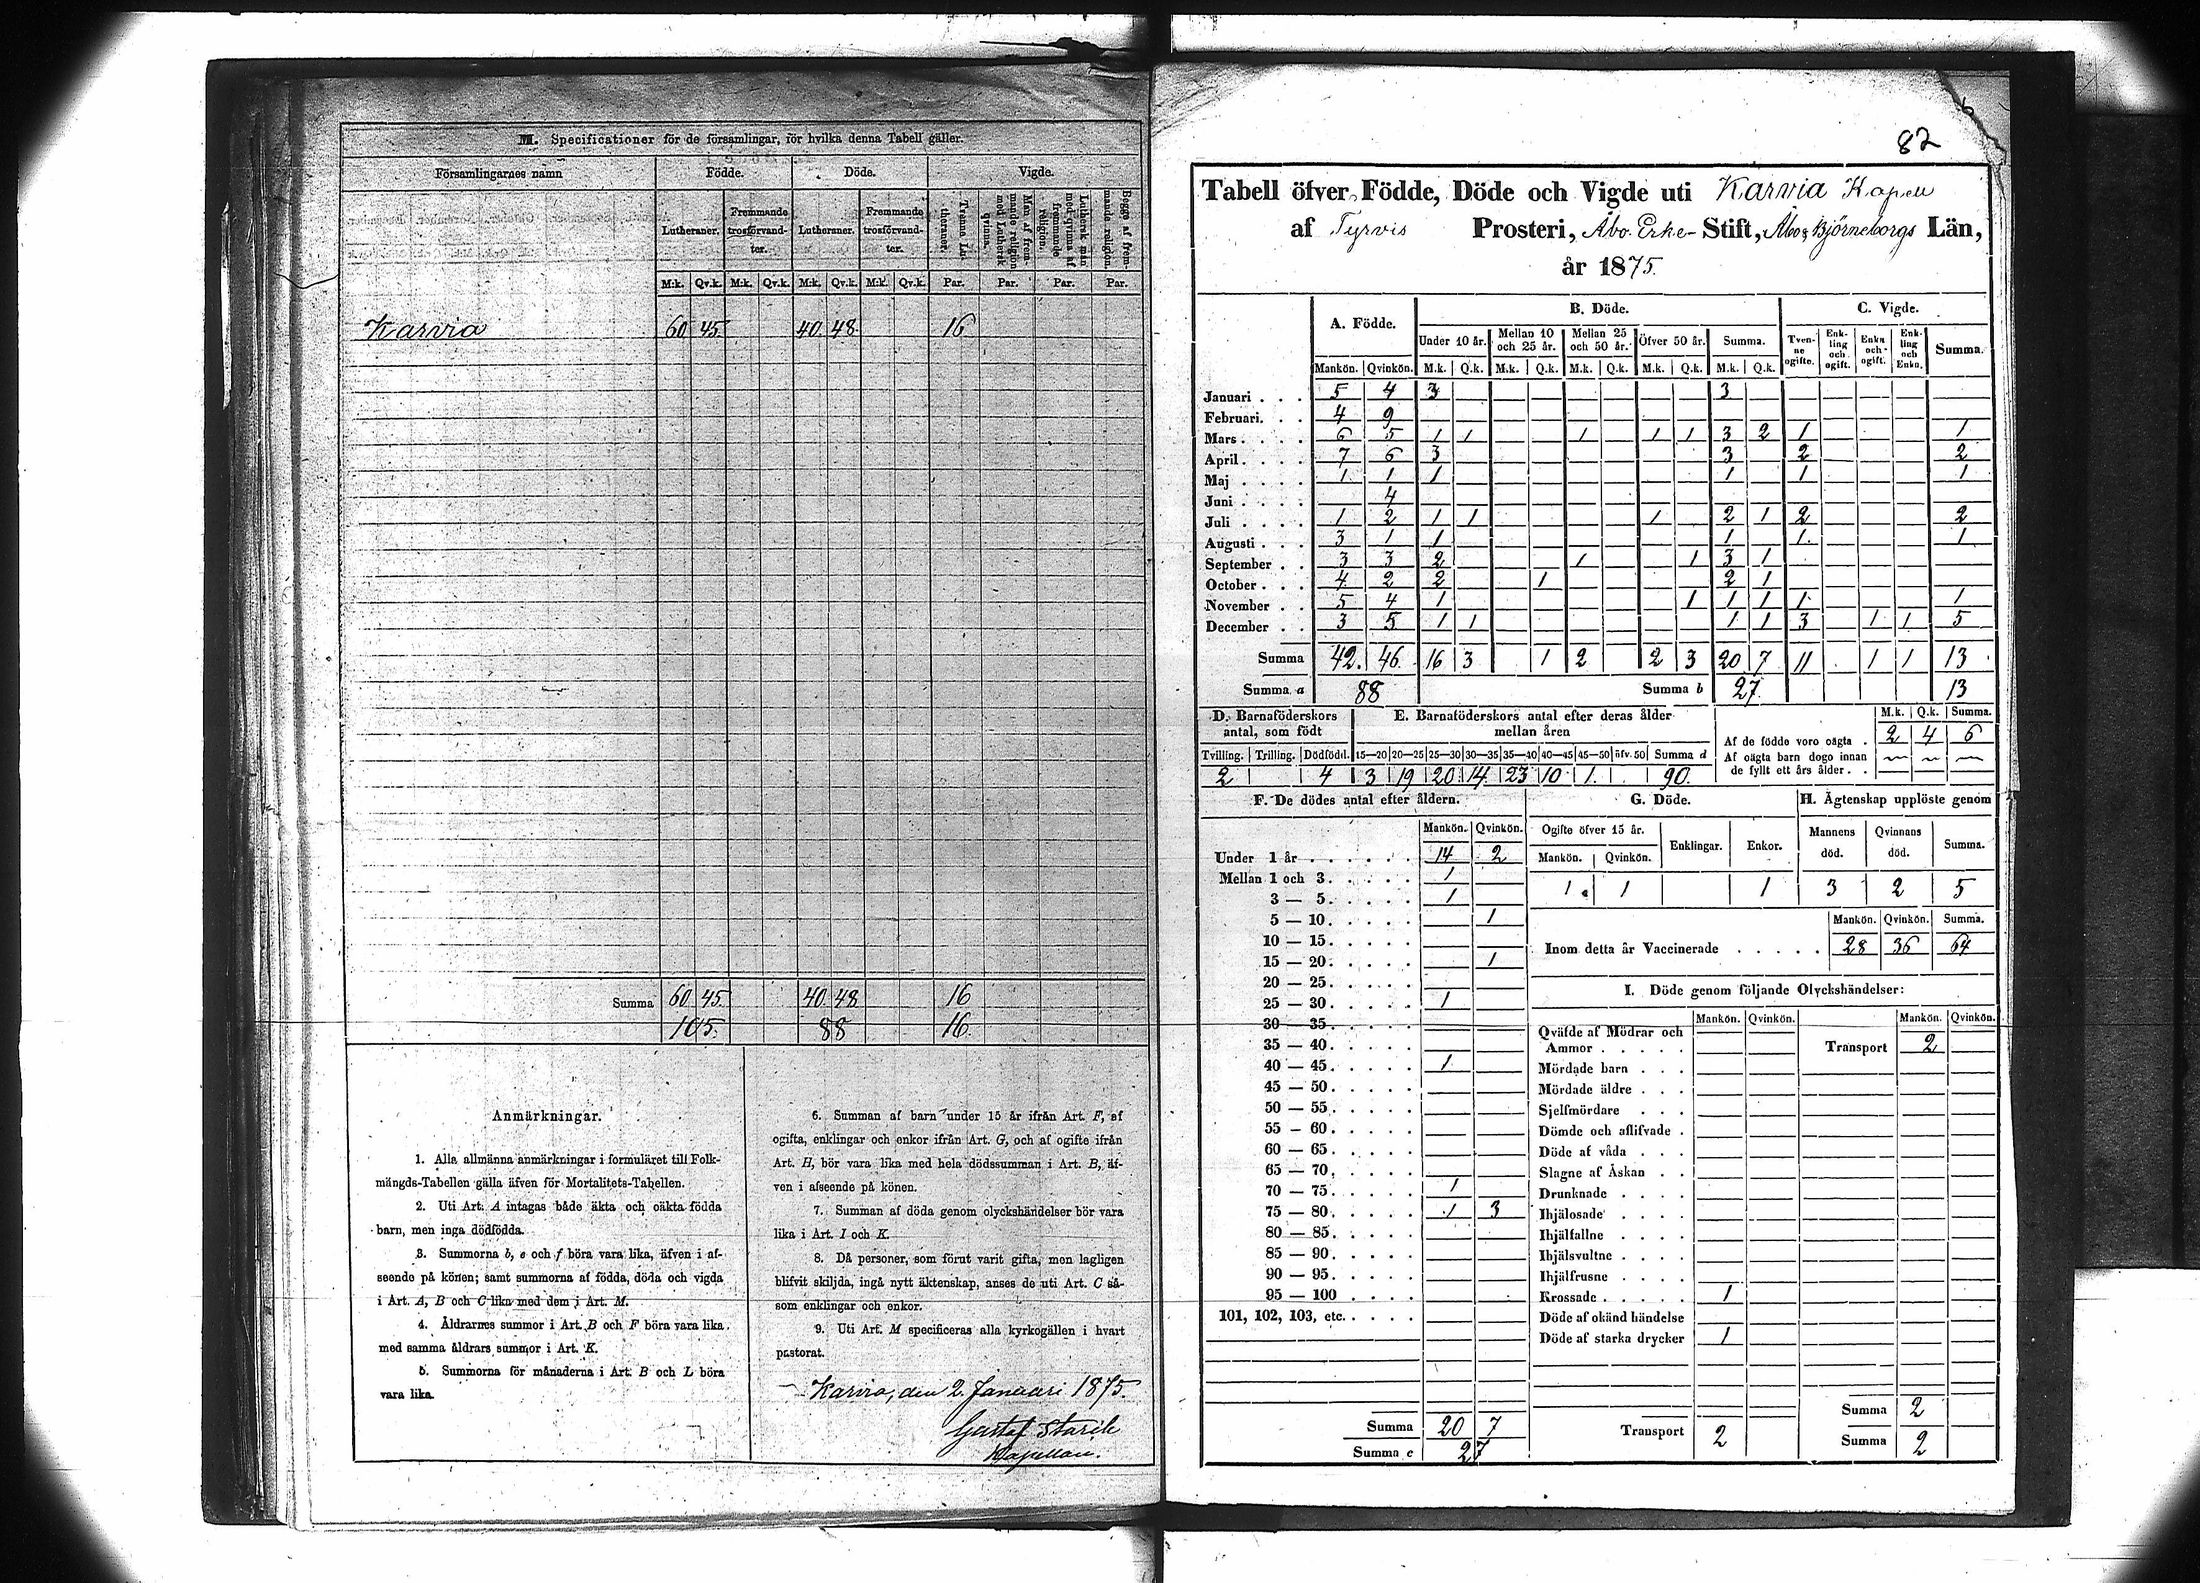 M. Specificationer för de församlingar, för hvilka denna Tabell gäller.
Församlingarnes namn
Födde.
Döde.
Vigde.
Lutheraner.
Fremmande trosförvandter.
Lutheraner.
Fremmande trosförvandter.
Tvenne Lutheraner.
Man af fremmande religion med Luthersk qvinna.
Luthersk man med qvinna af fremmande religion.
Begge af fremmande religion.
M:k. Qv.k. M:k. Qv.k. M:k. Qv.k. M:k. Qv.k. Par. Par. Par. Par.
Karvia 60 45. 40. 48. 16
Summa 60. 45. 40. 48 16
105. 88 16.
Anmärkningar.
1. Alla allmänna anmärkningar i formuläret till Folk-
mängds-Tabellen gälla äfven för Mortalitets-Tabellen.
2. Uti Art. A intagas både äkta och oäkta födda
barn, men inga dödfödda.
3. Summorna b, e och f böra vara lika, äfven i af-
seende på könen; samt summorna af födda, döda och vigda
i Art. A, B och C lika med dem i Art. M.
4. Åldrarnes summor i Art. B och F böra vara lika
med samma åldrars summor i Art. K.
5. Summorna för månaderna i Art. B och L böra
vara lika.
6. Summan af barn under 15 år ifrån Art. F, af
ogifta, enklingar och enkor ifrån Art. G, och af ogifte ifrån
Art. H, bör vara lika med hela dödssumman i Art. B, äf-
ven i afseende på könen.
7. Summan af döda genom olyckshändelser bör vara
lika i Art. I och K.
8. Då personer, som förut varit gifta, men lagligen
blifvit skiljda, ingå nytt äktenskap, anses de uti Art. C så-
som enklingar och enkor.
9. Uti Art. M specificeras alla kyrkogällen i hvart
pastorat.
Karvia, den 2. Januari 1875.
Gustaf Starik
Kapellan.
82
Tabell öfver Födde, Döde och Vigde uti Karvia Kapell
af Tyrvis Prosteri, Åbo Erke- Stift, Åbo & Björneborgs Län,
år 1875.
A. Födde.
B. Döde.
C. Vigde.
Under 10 år. Mellan 10 och 25 år. Mellan 25 och 50 år. Öfver 50 år. Summa.
Tvenne ogifte. Enkling och ogift. Enka och ogift. Enkling och Enka. Summa.
Mankön. Qvinkön. M.k. Q.k. M.k. Q.k. M.k. Q.k. M.k. Q.k. M.k. Q.k.
Januari . . . 5 4 3 3
Februari. . . 4 9
Mars . . . . 6 5 1 1 1 1 1 3 2 1 1
April . . . . 7 6 3 3 2 2
Maj . . . . 1 1 1 1 1 1
Juni . . . . 4
Juli . . . . 1 2 1 1 1 2 1 2 2
Augusti . . . 3 1 1 1 1. 1
September . . 3 3 2 1 1 3 1
October . . . 4 2 2 1 2 1
November . . 5 4 1 1 1 1 1 1
December . . 3 5 1 1 1 1 3 1 1 5
Summa 42. 46. 16 3 1 2 2 3 20 7 11 1 1 13
Summa a 88 Summa b 27. 13
D. Barnaföderskors antal, som födt
Tvilling. Trilling. Dödfödd.
2 4
E. Barnaföderskors antal efter deras ålder mellan åren
15—20 20—25 25—30 30—35 35—40 40—45 45—50 öfv. 50 Summa d
3 19 20 14 23 10 1. 90.
M.k. Q.k. Summa.
Af de födde voro oägta . 2 4 6
Af oägta barn dogo innan
de fyllt ett års ålder . . ~ ~ ~
F. De dödes antal efter åldern.
Mankön. Qvinkön.
Under 1 år . . . . . . 14 2
Mellan 1 och 3 . . . . . 1
3 — 5. . . . . 1
5 — 10. . . . . 1
10 — 15. . . . .
15 — 20. . . . . 1
20 — 25. . . . .
25 — 30. . . . . 1
30 — 35. . . . .
35 — 40. . . . .
40 — 45. . . . . 1
45 — 50. . . . .
50 — 55. . . . .
55 — 60. . . . .
60 — 65. . . . .
65 — 70. . . . .
70 — 75. . . . . 1
75 — 80. . . . . 1 3
80 — 85. . . . .
85 — 90. . . . .
90 — 95. . . . .
95 — 100 . . . .
101, 102, 103, etc. . . . .
Summa 20 7
Summa c 27
G. Döde.
Ogifte öfver 15 år. Enklingar. Enkor.
Mankön. Qvinkön.
1 1 1
H. Ägtenskap upplöste genom
Mannens död. Qvinnans död. Summa.
3 2 5
Mankön. Qvinkön. Summa.
Inom detta år Vaccinerade . . . . . 28 36 64
I. Döde genom följande Olyckshändelser:
Mankön. Qvinkön. Mankön. Qvinkön.
Qväfde af Mödrar och
Ammor . . . . .
Transport 2
Mördade barn . . .
Mördade äldre . . .
Sjelfmördare . . .
Dömde och aflifvade .
Döde af våda . . .
Slagne af Åskan . .
Drunknade . . . .
Ihjälosade . . . .
Ihjälfallne . . . .
Ihjälsvultne . . . .
Ihjälfrusne . . . .
Krossade . . . . . 1
Döde af okänd händelse
Döde af starka drycker 1
Summa 2
Transport 2
Summa 2